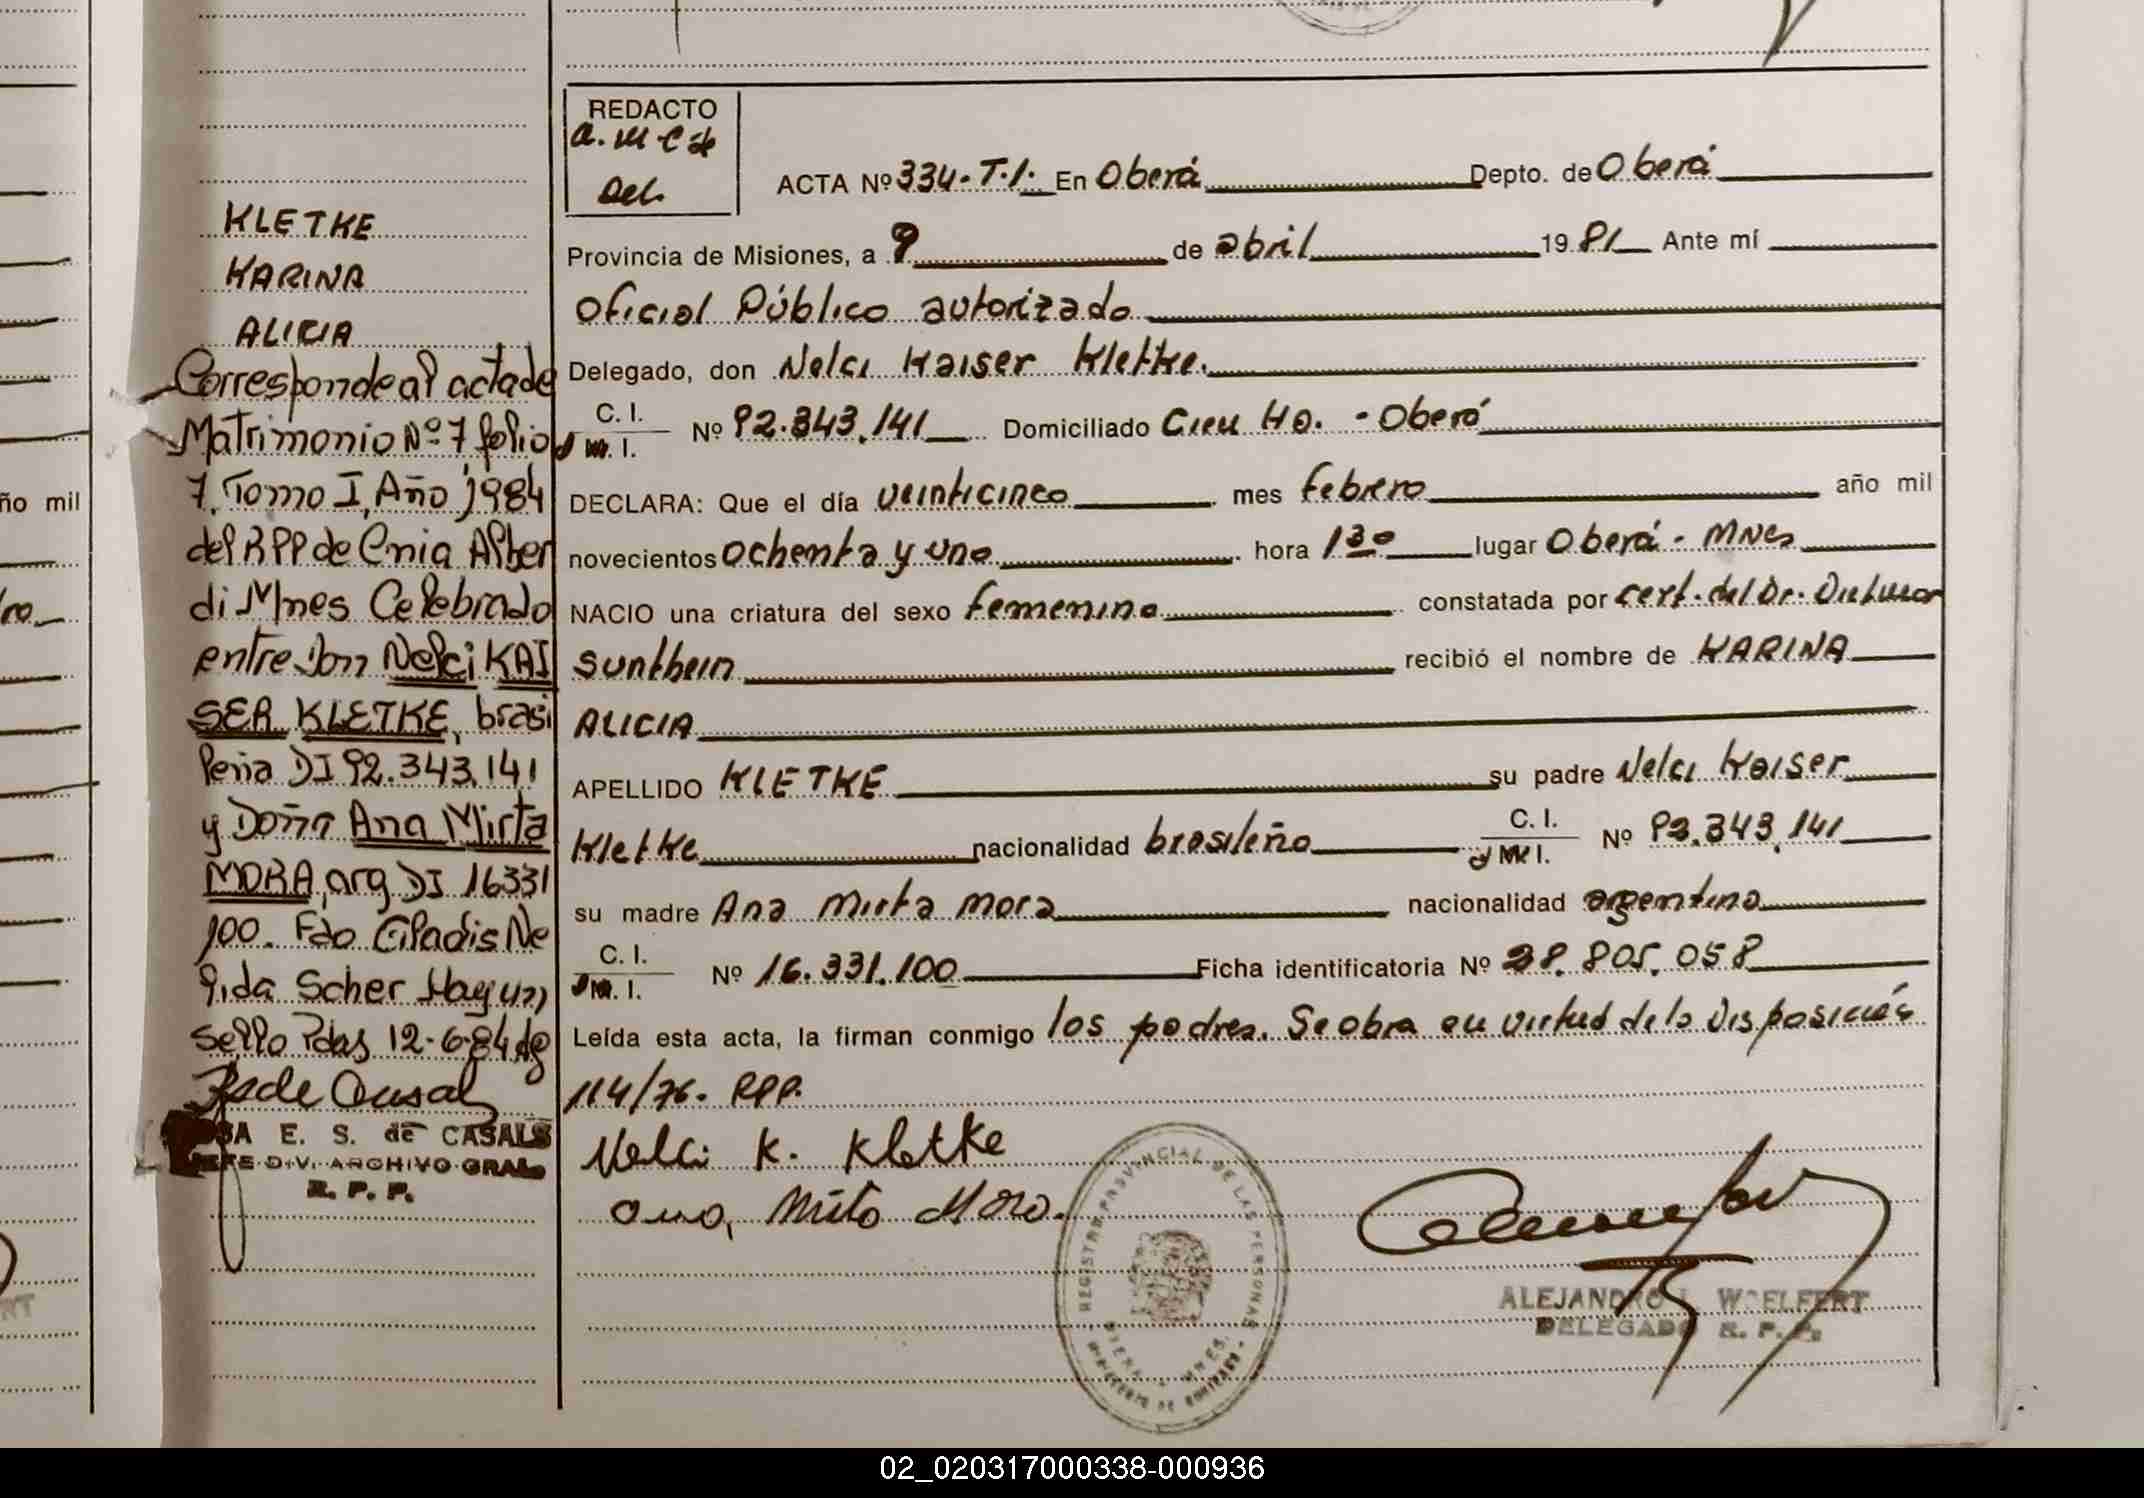 ño mil
ro
RT
KLETKE
KARINA
ALICIA
Corresponde al acta de
Matrimonio Nº 7 folio
7, Tomo I, Año 1984
del RPP de Cnia Alber
di Mnes Celebrado
entre Don Nelci KAI
SER KLETKE, brasi
leña DI 92.343.141
y Doña Ana Mirta
MORA, arg DI 16331
100. Fdo Gladis Ne
lida Scher Hay un
sello Pdas 12-6-84 dg
SA E. S. de CASALS
JEFE DIV. ARCHIVO GRAL
R. P. P.
REDACTO
a. m c de
Del.
ACTA Nº 334-T.I. En Oberá Depto. de Oberá
Provincia de Misiones, a 9 de abril 1981 Ante mí
Oficial Público autorizado
Delegado, don Nelci Kaiser Kletke.
C. I.
M. I. Nº 92.343.141 Domiciliado Oberá
DECLARA: Que el día veinticinco mes febrero año mil
novecientos ochenta y uno hora 130 lugar Oberá - Mnes
NACIO una criatura del sexo femenino constatada por cert. del Dr.
recibió el nombre de KARINA
ALICIA
APELLIDO KLETKE su padre Nelci Kaiser
Kletke nacionalidad brasileña C. I. M. I. Nº 92.343.141
su madre Ana Mirta Mora nacionalidad argentina
C. I.
M. I. Nº 16.331.100 Ficha identificatoria Nº 28.805.058
Leída esta acta, la firman conmigo los padres. Se obra en virtud de la Disposición
114/76. RPP.
Nelci K. Kletke
Ana, Mirta Mora.
REGISTRO PROVINCIAL DE LAS PERSONAS
ALEJANDRO L. WOELFERT
DELEGADO R. P. P.
02_020317000338-000936